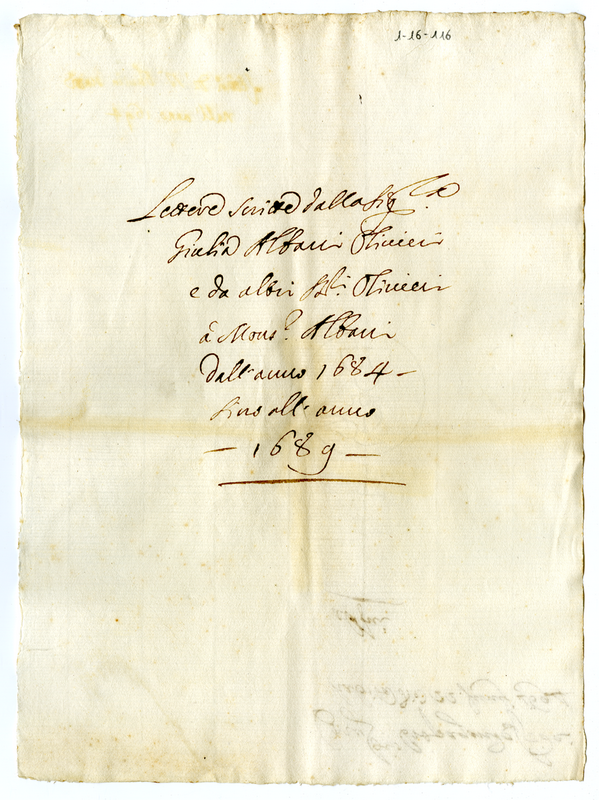 1-16-116
Lettere scritte dalla Sig.ra
Giulia Albani Olivieri
e da altri SS.ri Olivieri
à Mons.r Albani
dall'anno 1684 -
sino all'anno
- 1689 -